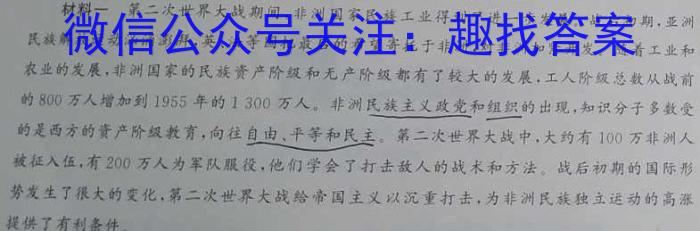 材料一 第二次世界大战期间,非洲国家民族工业得到
期,亚洲
微信公众号关注:趣找答案
民族解
工业和
农业的发展,非洲国家的民族资产阶级和无产阶级都有了较大的发展,工人阶级总数从战前
的800万人增加到1955年的1 300万人。非洲民族主义政党和组织的出现,知识分子多数受
的是西方的资产阶级教育,向往自由、平等和民主。第二次世界大战中,大约有100万非洲人
被征入伍,有200万人为军队服役,他们学会了打击敌人的战术和方法。战后初期的国际形
势发生了很大的变化,第二次世界大战给帝国主义以沉重打击,为非洲民族独立运动的高涨
提供了有利条件。